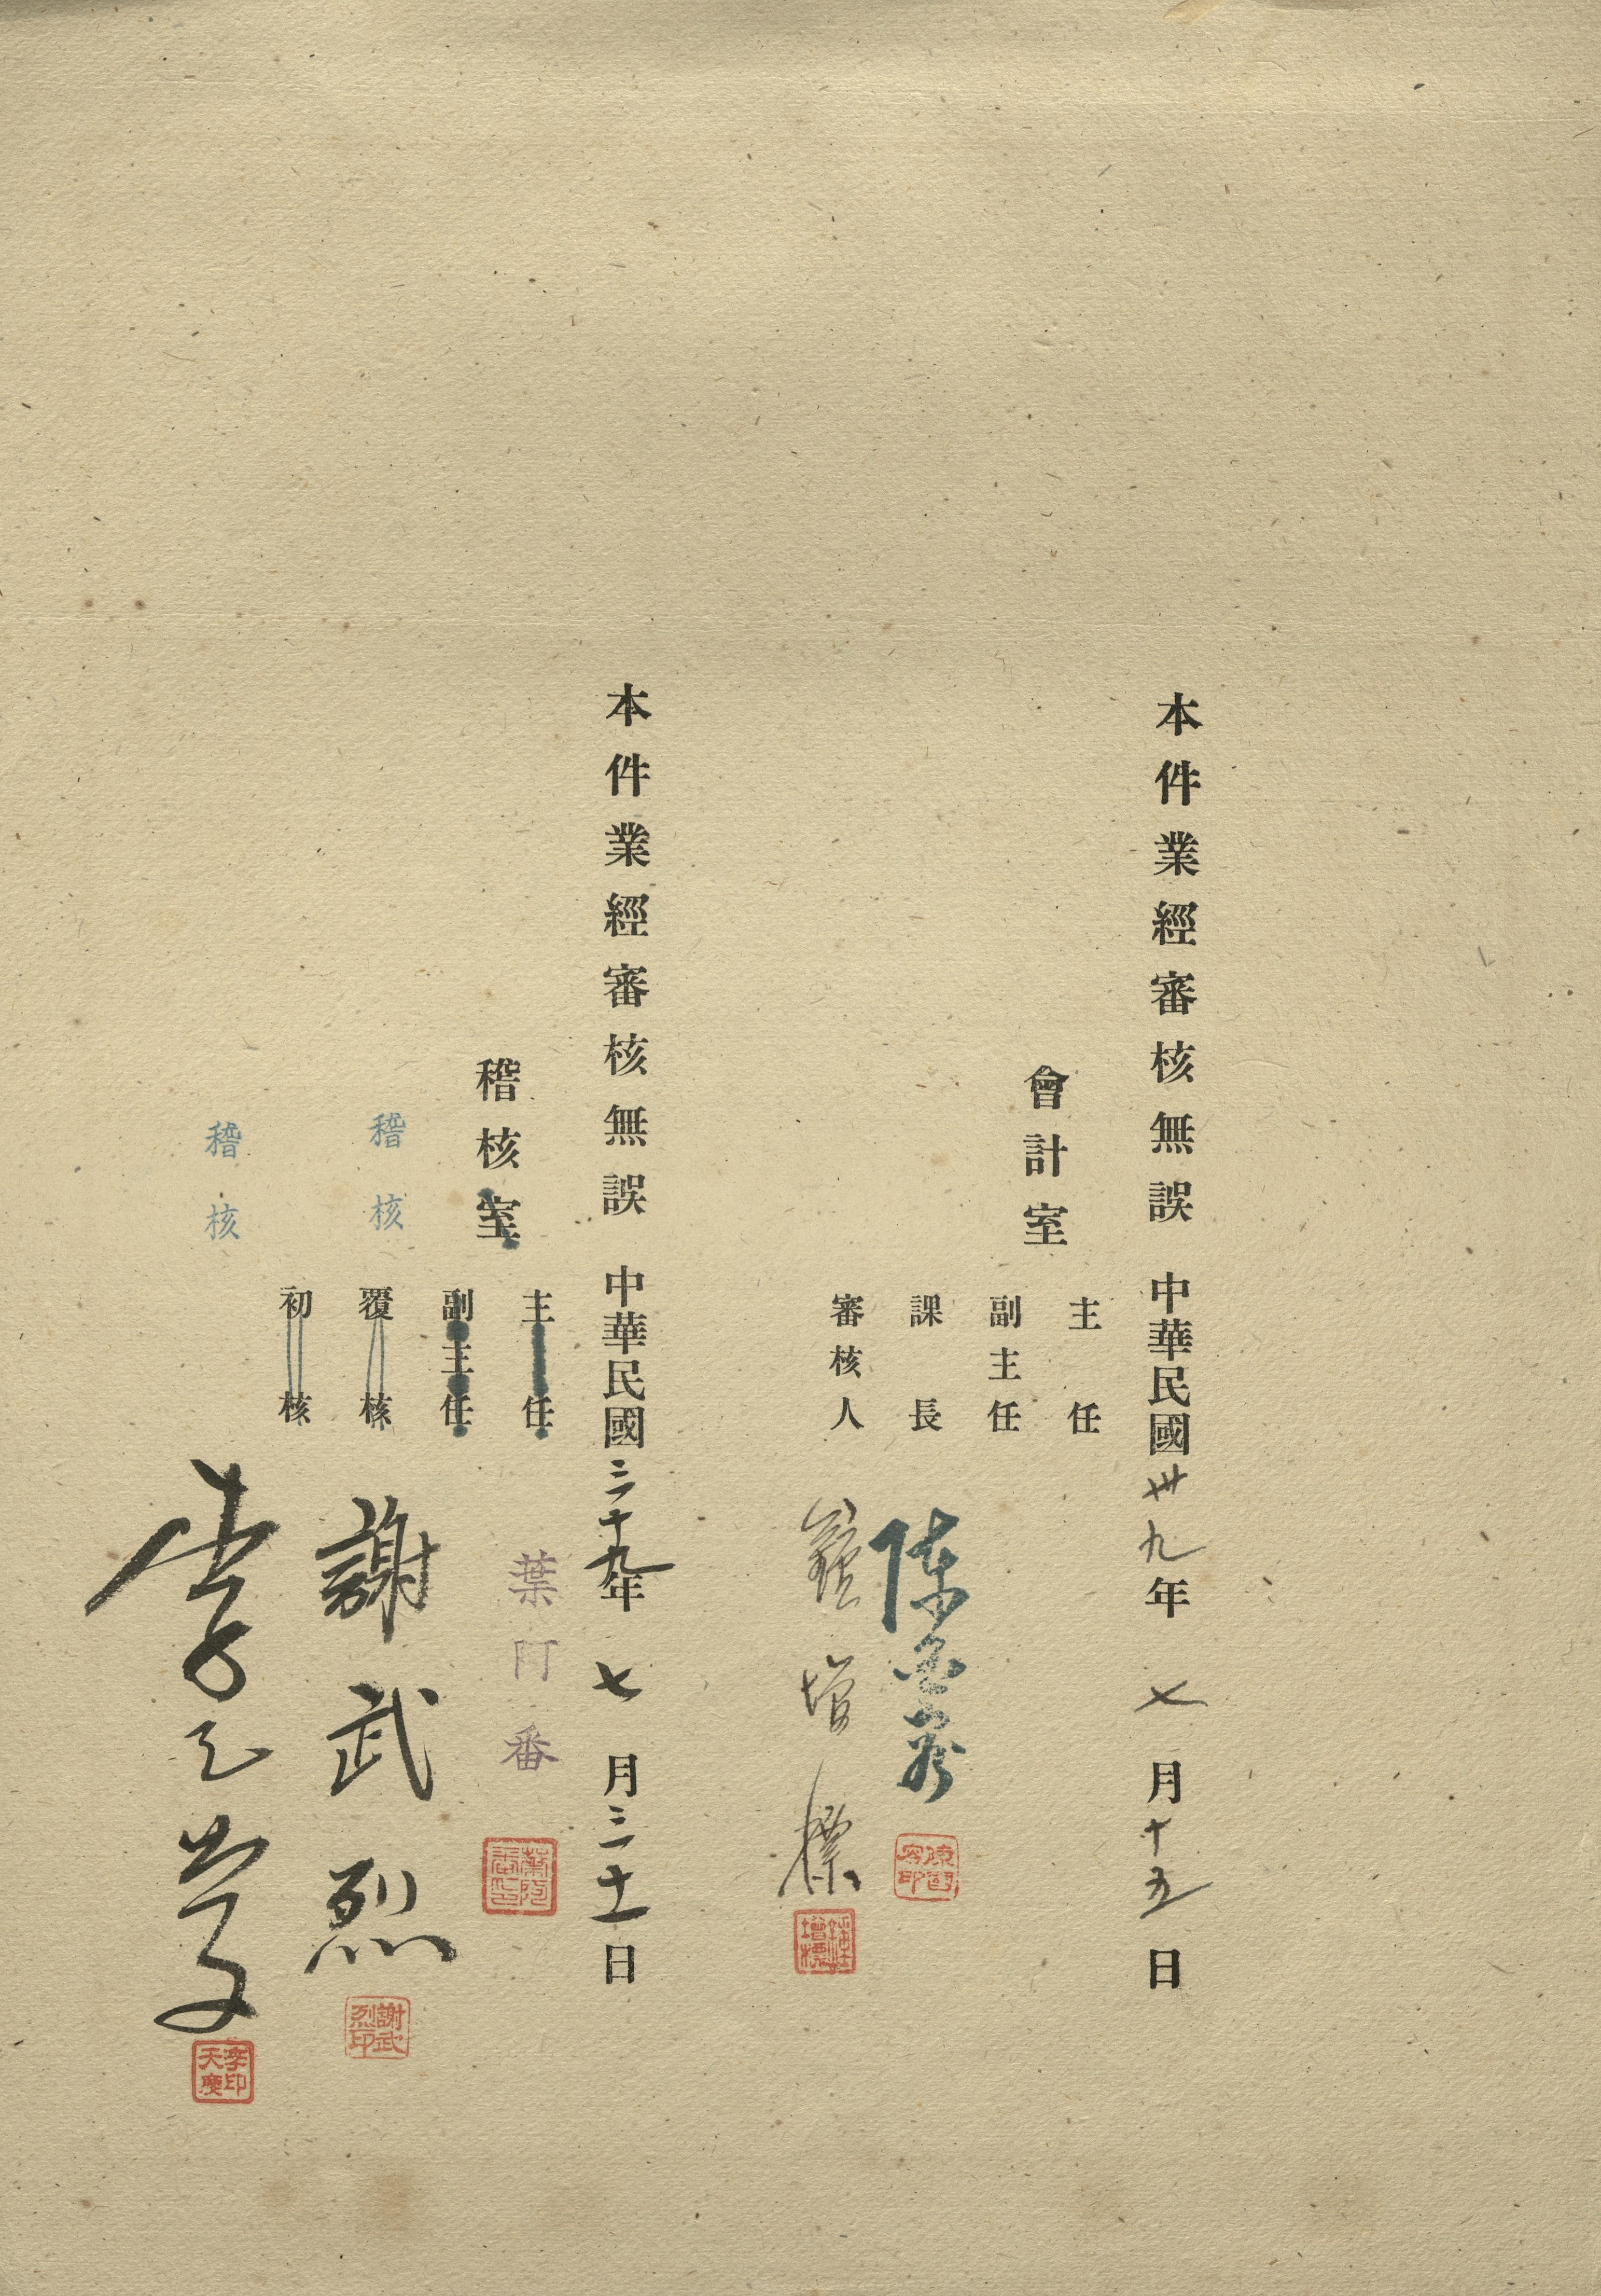 本件業經審核無誤 中華民國卅九年七月十五日
會計室
主任
副主任
課長 陳
審核人 鍾增標
鍾增標
本件業經審核無誤 中華民國三十九年七月三十一日
稽核室
主任 葉阿番
副主任
覆核
初核
稽核 謝武烈
謝武烈印
稽核 李天慶
李印天慶